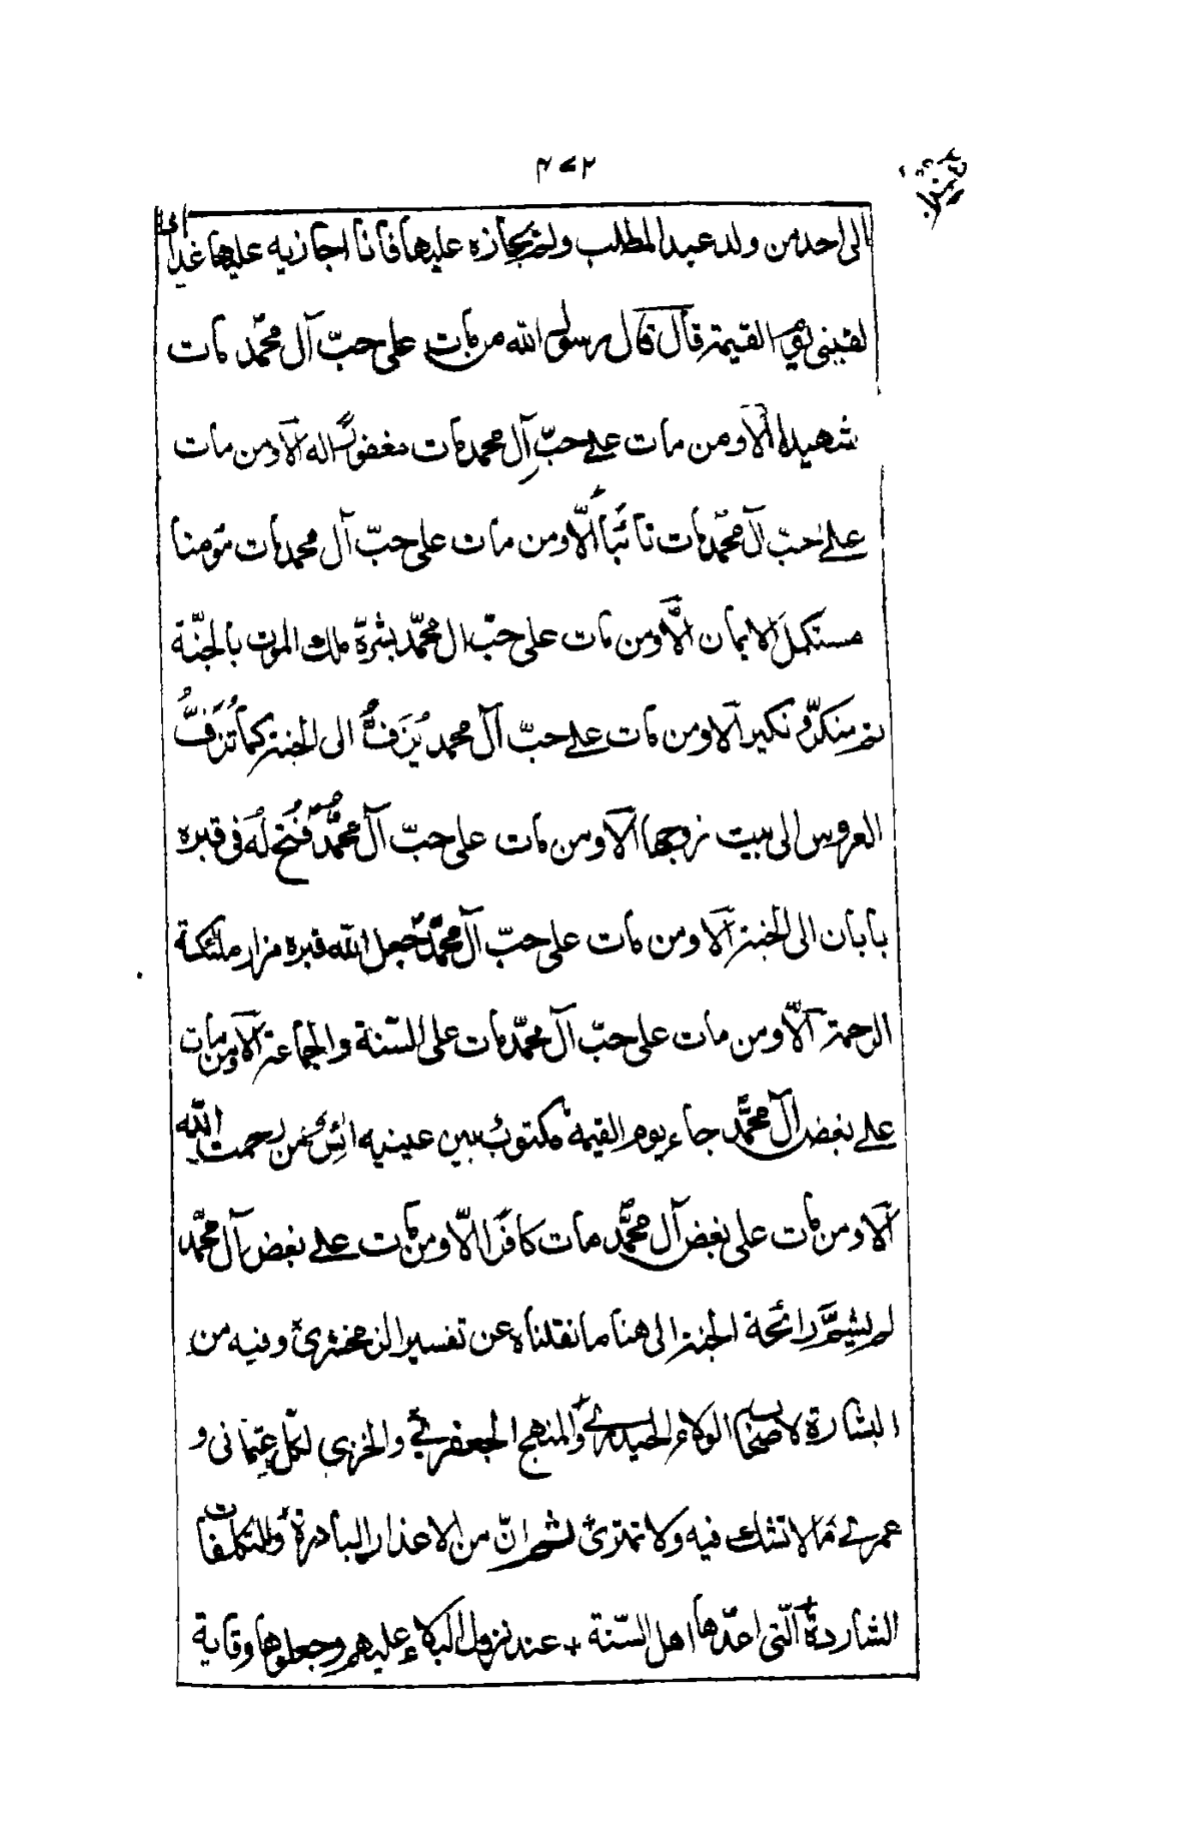 ۴۷۲
الی احد من ولد عبد المطلب ولم یجازه علیها فانا اجازیه علیها غدا اذا
لقینی یوم القیمة قال قال رسول الله من مات علی حبّ آل محمّد مات
شهیدا الا ومن مات علی حبّ آل محمد مات مغفورا له الا ومن مات
علی حبّ آل محمّد مات تائبا الّا ومن مات علی حبّ آل محمد مات مؤمنا
مستکمل الایمان الّا ومن مات علی حبّ ال محمّد بشرة ملک الموت بالجنّة
ثم منکر و نکیر الا ومن مات علی حبّ آل محمد یُزَفُّ الی الجنة کما تُزَفُّ
العروس الی بیت زوجها الا ومن مات علی حبّ آل محمّد فُتح لَه فی قبره
بابان الی الجنة الا ومن مات علی حبّ آل محمّد جعل الله قبره مزار ملئکة
الرحمة الّا ومن مات علی حبّ آل محمّد مات علی السّنة والجماعة الا ومن مات
علی بغض آل محمّد جاء یوم القیمة مکتوبٌ بین عینیه ائس من رحمت الله
الا ومن مات علی بغض آل محمّد مات کافرًا الّا ومن مات علی بغض آل محمّد
لم یشمَّ رائحة الجنة الی هنا ما نقلناه عن تفسیر الزمخشریّ وفیه من
البشارة لاصحاب الولاء الحیدریّ والمنهج الجعفریّ والخزی لکلّ عثمانی و
عمریّ مما لا تشک فیه ولا تمتریٰ ثم انّ من الاعذار البادرة والتکلفات
الشاردة الّتی اعدّها اهل السّنة + عند نزول البلاء علیهم وجعلوها وقایة